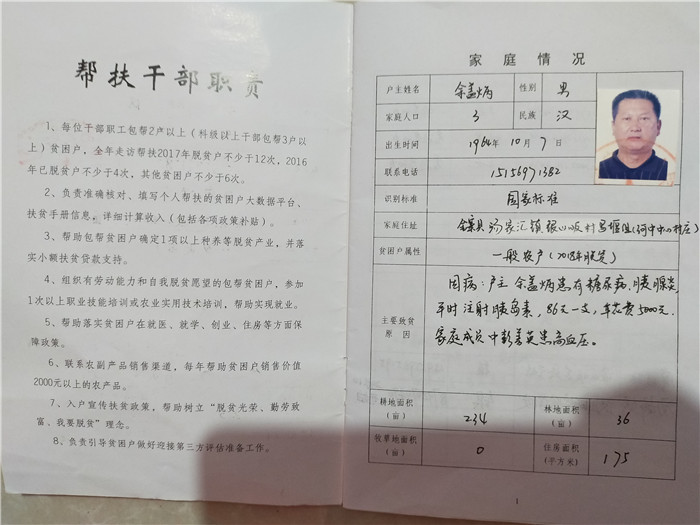 帮扶干部职责
1、每位干部职工包帮2户以上（科级以上干部包帮3户以
上）贫困户，全年走访帮扶2017年脱贫户不少于12次，2016
年已脱贫户不少于4次，其他贫困户不少于6次。
2、负责准确核对、填写个人帮扶的贫困户大数据平台、
扶贫手册信息，详细计算收入（包括各项政策补贴）。
3、帮助包帮贫困户确定1项以上种养等脱贫产业，并落
实小额扶贫贷款支持。
4、组织有劳动能力和自我脱贫愿望的包帮贫困户，参加
1次以上职业技能培训或农业实用技术培训，帮助实现就业。
5、帮助落实贫困户在就医、就学、创业、住房等方面保
障政策。
6、联系农副产品销售渠道，每年帮助贫困户销售价值
2000元以上的农产品。
7、入户宣传扶贫政策，帮助树立“脱贫光荣、勤劳致
富、我要脱贫”理念。
8、负责引导贫困户做好迎接第三方评估准备工作。
家庭情况
户主姓名 余孟炳 性别 男
家庭人口 3 民族 汉
出生时间 1964年10月7日
联系电话 15156971382
识别标准 国家标准
家庭住址 金寨县汤家汇镇银山畈村 堰组(河中中心村庄)
贫困户属性 一般农户(2018年脱贫)
主要致贫
原因
因病：户主余孟炳患有糖尿病、胰腺炎，
平时注射胰岛素，86元一支，年花费5000元。
家庭成员中彭 英患高血压。
耕地面积
（亩） 2.34 林地面积
（亩） 36
牧草地面积
（亩） 0 住房面积
（平方米） 175
1